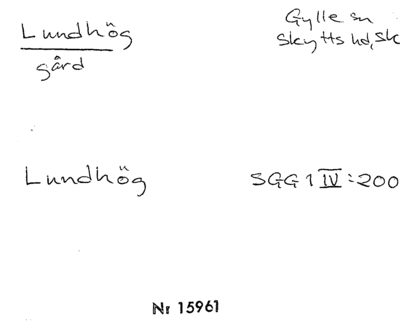 Lundhög
gård
Gylle sn
Skytts hd, Sk
Lundhög
SGG 1 IV:200
Nr 15961